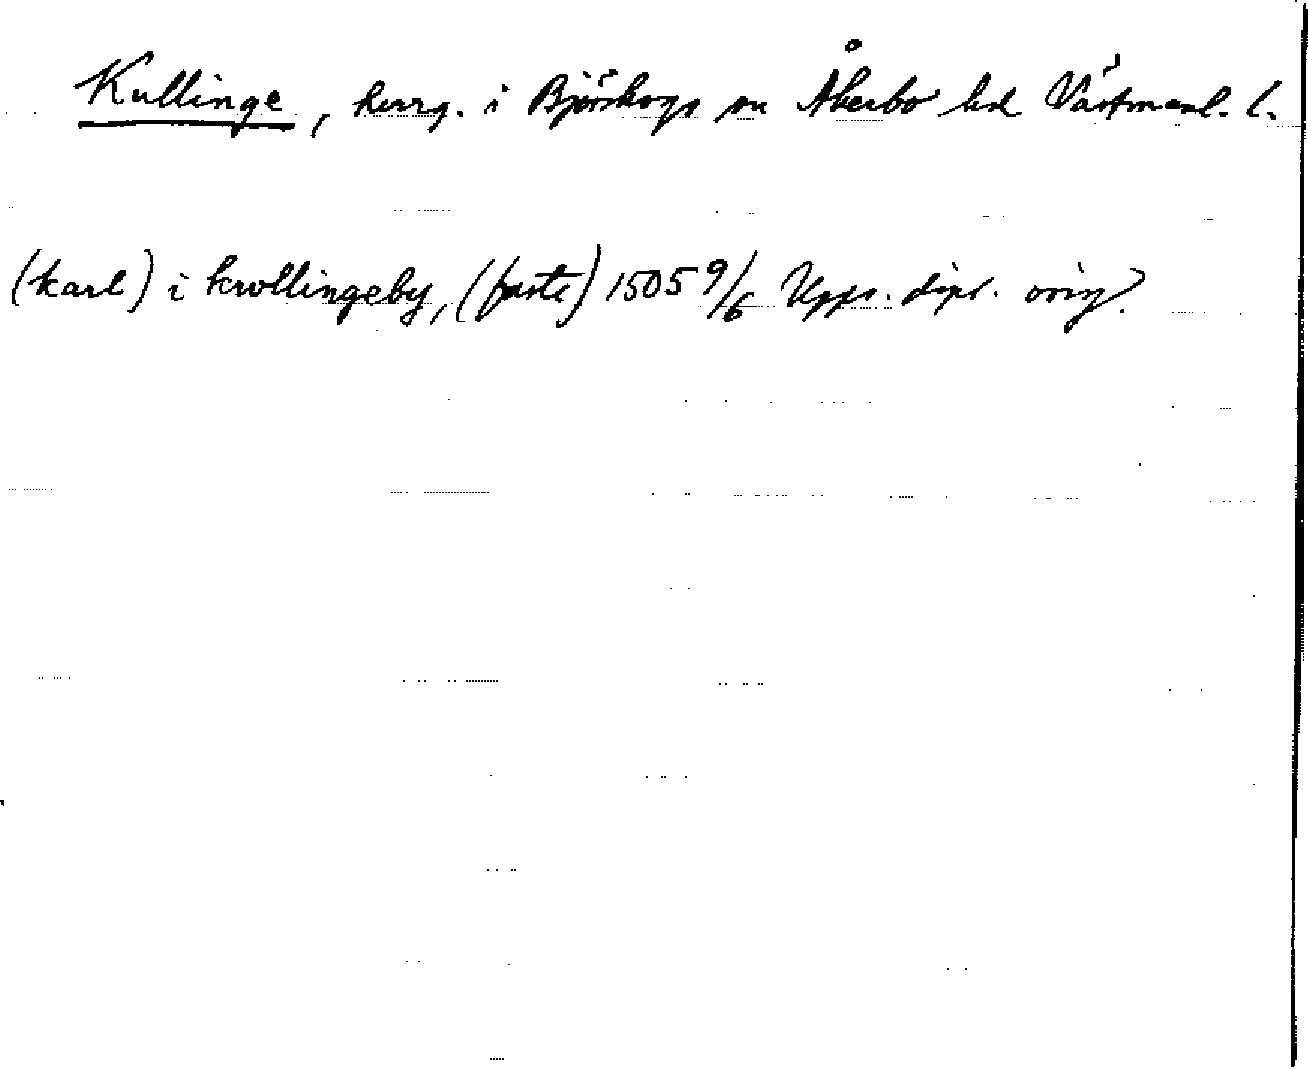 Kullinge, herrg. i Björskogs sn Åkerbo hd Västmanl. l.
(karl) i kwllingeby, (faste) 1505 9/6 Upps. dipl. orig.